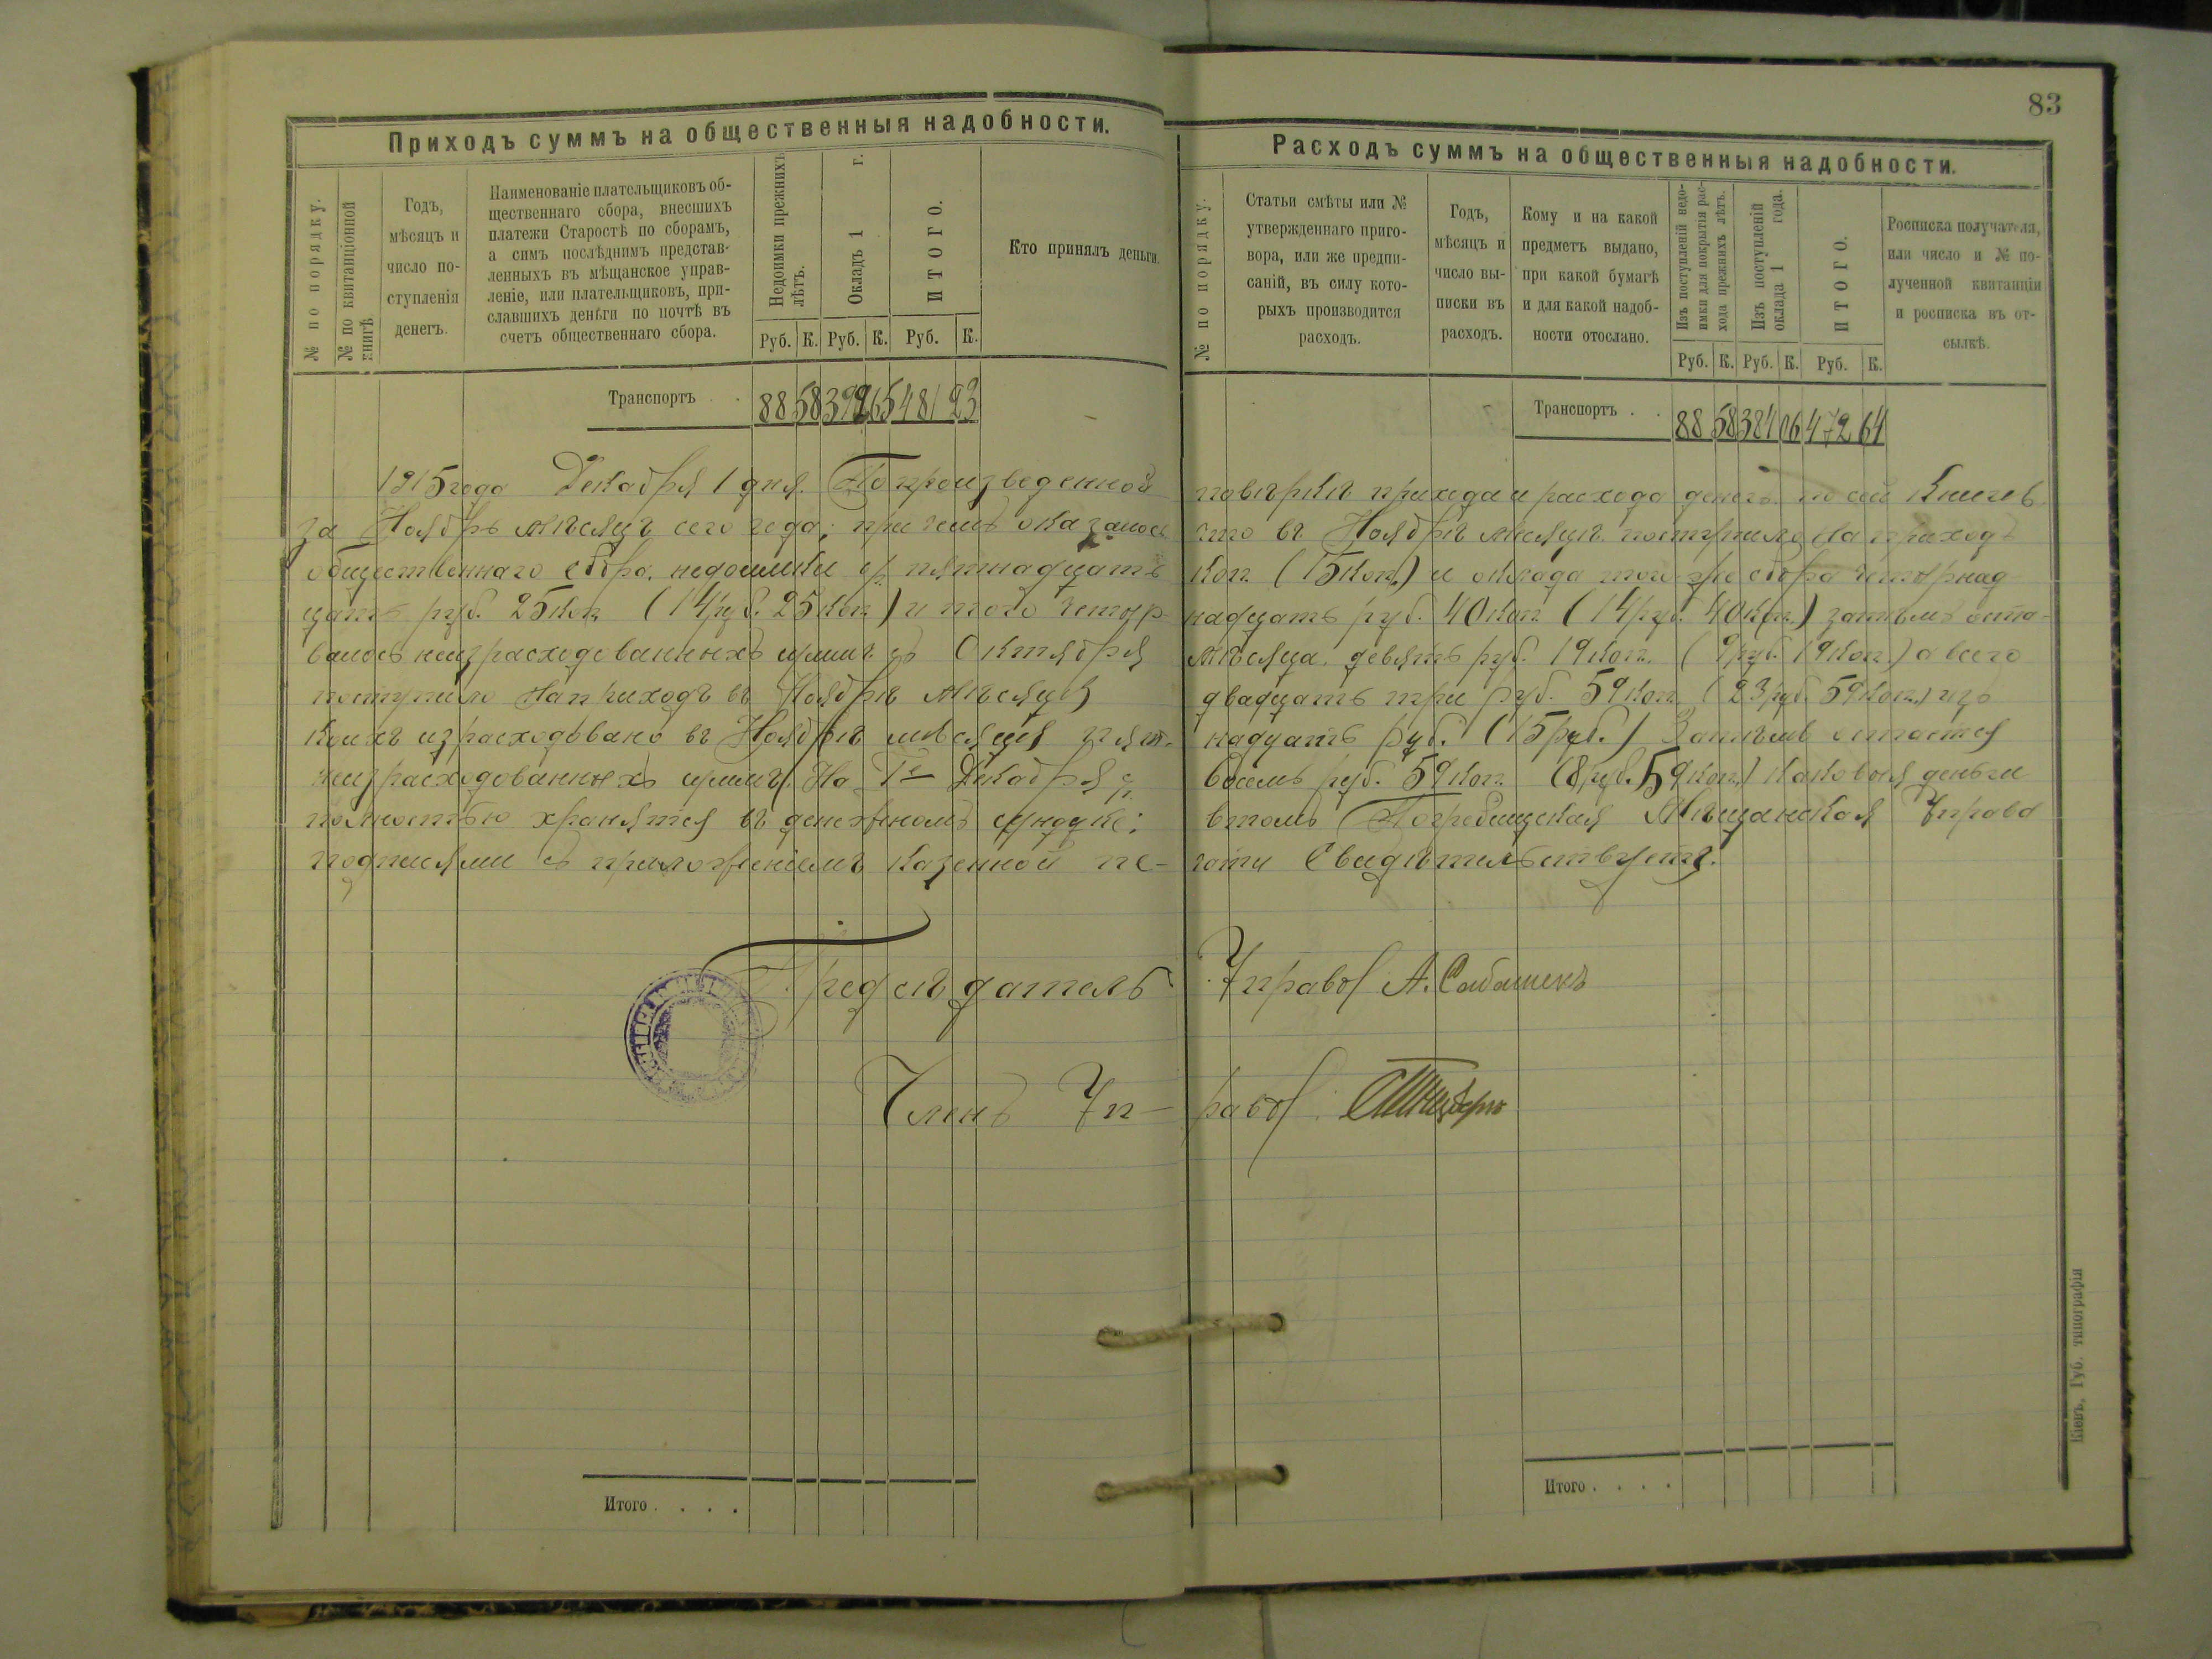 83
Приходъ суммъ на общественныя надобности.
№ по порядку.
№ по квитанціонной книгѣ
Годъ, мѣсяцъ и число поступленія денегъ.
Наименованіе плательщиковъ об-
щественнаго сбора, внесшихъ
платежи Старостѣ по сборамъ,
а симъ послѣднимъ представ-
ленныхъ въ мѣщанское управ-
леніе, или плательщиковъ, при-
славшихъ деньги по почтѣ въ
счетъ общественнаго сбора.
Недоимки прежнихъ лѣтъ.
Окладъ 1 г.
ИТОГО.
Кто принялъ деньги.
Руб. К. Руб. К. Руб. К.
Транспортъ . . 88 58 392 65 481 23
Расходъ суммъ на общественныя надобности.
№ по порядку.
Статьи смѣты или №
утвержденнаго приго-
вора, или же предпи-
саній, въ силу кото-
рыхъ производится
расходъ.
Годъ,
мѣсяцъ и
число вы-
писки въ
расходъ.
Кому и на какой
предметъ выдано,
при какой бумагѣ
и для какой надоб-
ности отослано.
Изъ поступленій недо-
имки для покрытія рас-
хода прежнихъ лѣтъ.
Изъ поступленій
оклада 1 года.
ИТОГО.
Росписка получателя,
или число и № по-
лученной квитанціи
и росписка въ от-
сылкѣ.
Руб. К. Руб. К. Руб. К.
Транспортъ . . 88 58 384 06 472 64
1915 года Декабря 1 дня. По произведенной повѣркѣ прихода и расхода денегъ по сей Книгѣ
за Ноябрь мѣсяцъ сего года; при чемъ оказалось что въ Ноябрѣ мѣсяцѣ поступило на приходъ
общественнаго сбора, недоимки пятнадцать коп. (15 коп.) и оклада того же сбора четырнад
цать руб. 25 коп. (14 руб. 25 коп.) и того четыр- надцать руб. 40 коп. (14 руб. 40 коп.) затѣмъ оста-
валось неизрасходованныхъ суммъ съ Октября мѣсяца девять руб. 19 коп. (9 руб. 19 коп.) а всего
поступило на приходъ въ Ноябрѣ мѣсяцѣ двадцать три руб. 59 коп. (23 руб. 59 коп.) изъ
коихъ израсходовано въ Ноябрѣ мѣсяцѣ пят- надцать руб. (15 руб.) Затѣмъ остается
неизрасходованныхъ суммъ На 1е Декабря восемь руб. 59 коп. (8 руб. 59 коп.) каковыя деньги
полностью хранятся въ денежномъ сундукѣ; втомъ Погребищская Мѣщанская Управа
подписями съ приложеніемъ казенной пе- чати Свидѣтельствуетъ.
Предсѣдатель Управы А.
Членъ Уп- равы
Итого . . . .
Итого . . . .
Кіевъ, Губ. типографія